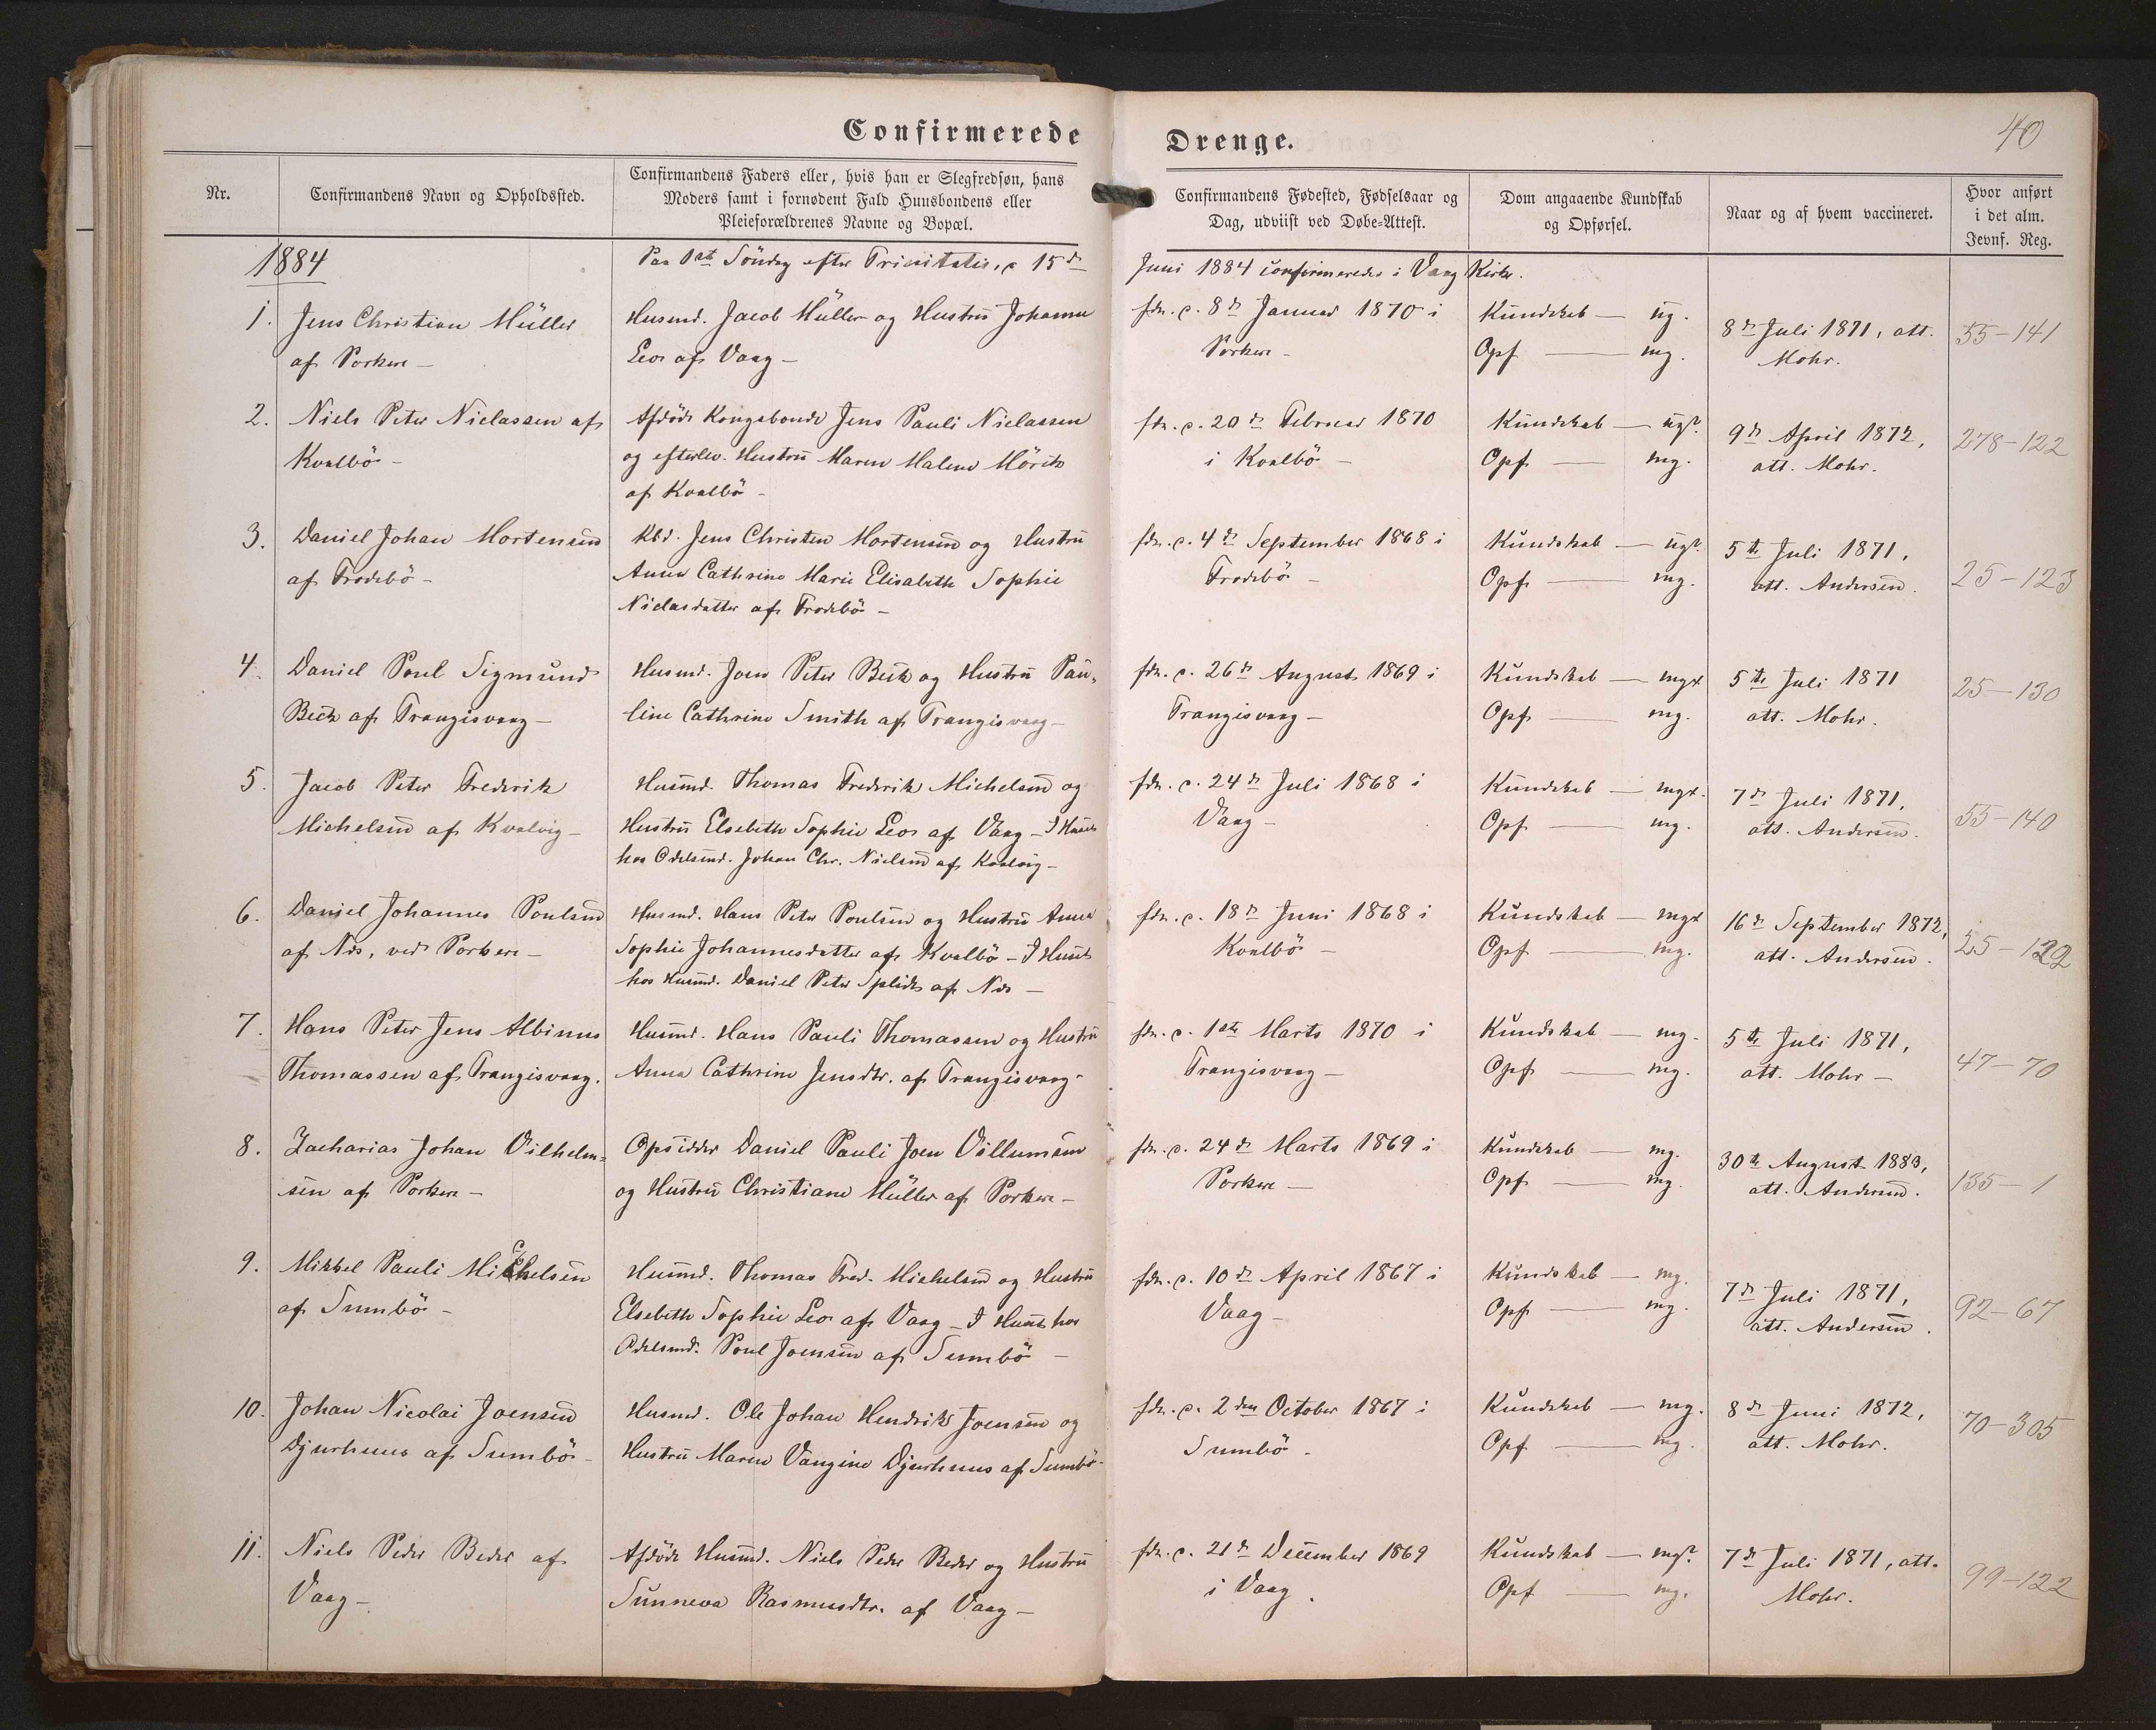 Confirmerede Drenge.
40
Nr.
Confirmandens Navn og Opholdssted.
Confirmandens Faders eller, hvis han er Slegfredsøn, hans
Moders samt i fornødent Fald Huusbondens eller
Pleieforældrenes Navne og Bopæl.
Confirmandens Fødested, Fødselsaar og
Dag, udviist ved Døbe-Attest.
Dom angaaende Kundskab
og Opførsel.
Naar og af hvem vaccineret.
Hvor anført
i det alm.
Jevnf. Reg.
1884
Paa 1ste Söndag efter Trinitatis, 15de Juni 1884 confirmeredes i Vaag Kirke.
1.
Jens Christian Müller
af Porkere –
Husmd. Jacob Müller og Hustrü Johanne
Leo af Vaag –
fdr. 8de Januar 1870 i
Porkere –
Kundskab — ug.
Opf — mg.
8de Juli 1871, att.
Mohr.
55–141
2.
Niels Peter Niclassen af
Kvalbö –
Afdöde Kongsbonde Jens Pauli Niclassen
og efterlev. Hustrü Maren Malene Möritz
af Kvalbö –
fdr. 20de Februar 1870
i Kvalbö –
Kundskab — ug?
Opf — mg.
9de April 1872,
att. Mohr.
278–122
3.
Daniel Johan Mortensen
af Frodebö –
Kbd. Jens Christen Mortensen og Hustrü
Anna Cathrine Marie Elisabeth Sophie
Niclasdatter af Frodebö –
fdr. 4de September 1868 i
Frodebö –
Kundskab — ug?
Opf — mg.
5te Juli 1871,
att. Andersen.
25–123
4.
Daniel Poul Sigmund
Beck af Trangisvaag –
Husmd. Joen Peter Beck og Hustrü Pau-
line Cathrine Smith af Trangisvaag –
fdr. 26de August 1869 i
Trangisvaag –
Kundskab — mgx
Opf — mg.
5te Juli 1871
att. Mohr.
25–130
5.
Jacob Peter Frederik
Michelsen af Kvalvig –
Husmd. Thomas Frederik Michelsen og
Hustrü Elsebeth Sophie Leo af Vaag – I Huus
hos Odelsmd. Johan Chr. Nielsen af Kvalvig –
fdr. 24de Juli 1868 i
Vaag –
Kundskab — mgx.
Opf — mg.
7de Juli 1871,
att. Andersen.
55–140
6.
Daniel Johannes Poulsen
af Næs, ved Porkere –
Husmd. Hans Peter Poulsen og Hustrü Anna
Sophie Johannesdatter af Kvalbö – I Huus
hos Husmd. Daniel Peter Splid af Næs –
fdr. 18de Juni 1868 i
Kvalbö –
Kundskab — mgx
Opf — mg.
16de September 1872,
att. Andersen.
25–122
7.
Hans Peter Jens Albinus
Thomassen af Trangisvaag.
Husmd. Hans Pauli Thomassen og Hustrü
Anna Cathrine Jensdtr. af Trangisvaag –
fdr. 1ste Marts 1870 i
Trangisvaag –
Kundskab — mg.
Opf — mg.
5te Juli 1871,
att. Mohr –
47–70
8.
Zacharias Johan Vilhelm-
sen af Porkere –
Opsidder Daniel Pauli Joen Villumsen
og Hustrü Christiane Müller af Porkere –
fdr. 24de Marts 1869 i
Porkere –
Kundskab — mg.
Opf — mg.
30te August 1883,
att. Andersen.
135–1
9.
Mikkel Pauli Michelsen
af Sumbö –
Husmd. Thomas Fred. Michelsen og Hustrü
Elsebeth Sophie Leo af Vaag – I Huus hos
Odelsmd. Poul Joensen af Sumbö –
fdr. 10de April 1867 i
Vaag –
Kundskab — mg.
Opf — mg.
7de Juli 1871,
att. Andersen.
92–67
10.
Johan Nicolai Joensen
Djurhuus af Sumbö –
Husmd. Ole Johan Hendrik Joensen og
Hustrü Maren Vangine Djurhuus af Sumbö –
fdr. 2den October 1867 i
Sumbö.
Kundskab — mg.
Opf — mg.
8de Juni 1872,
att. Mohr.
70–305
11.
Niels Peder Beder af
Vaag –
Afdöde Husmd. Niels Peder Beder og Hustrü
Sunneva Rasmusdtr. af Vaag –
fdr. 21de December 1869
i Vaag.
Kundskab — mg?
Opf — mg.
7de Juli 1871, att.
Mohr.
99–122